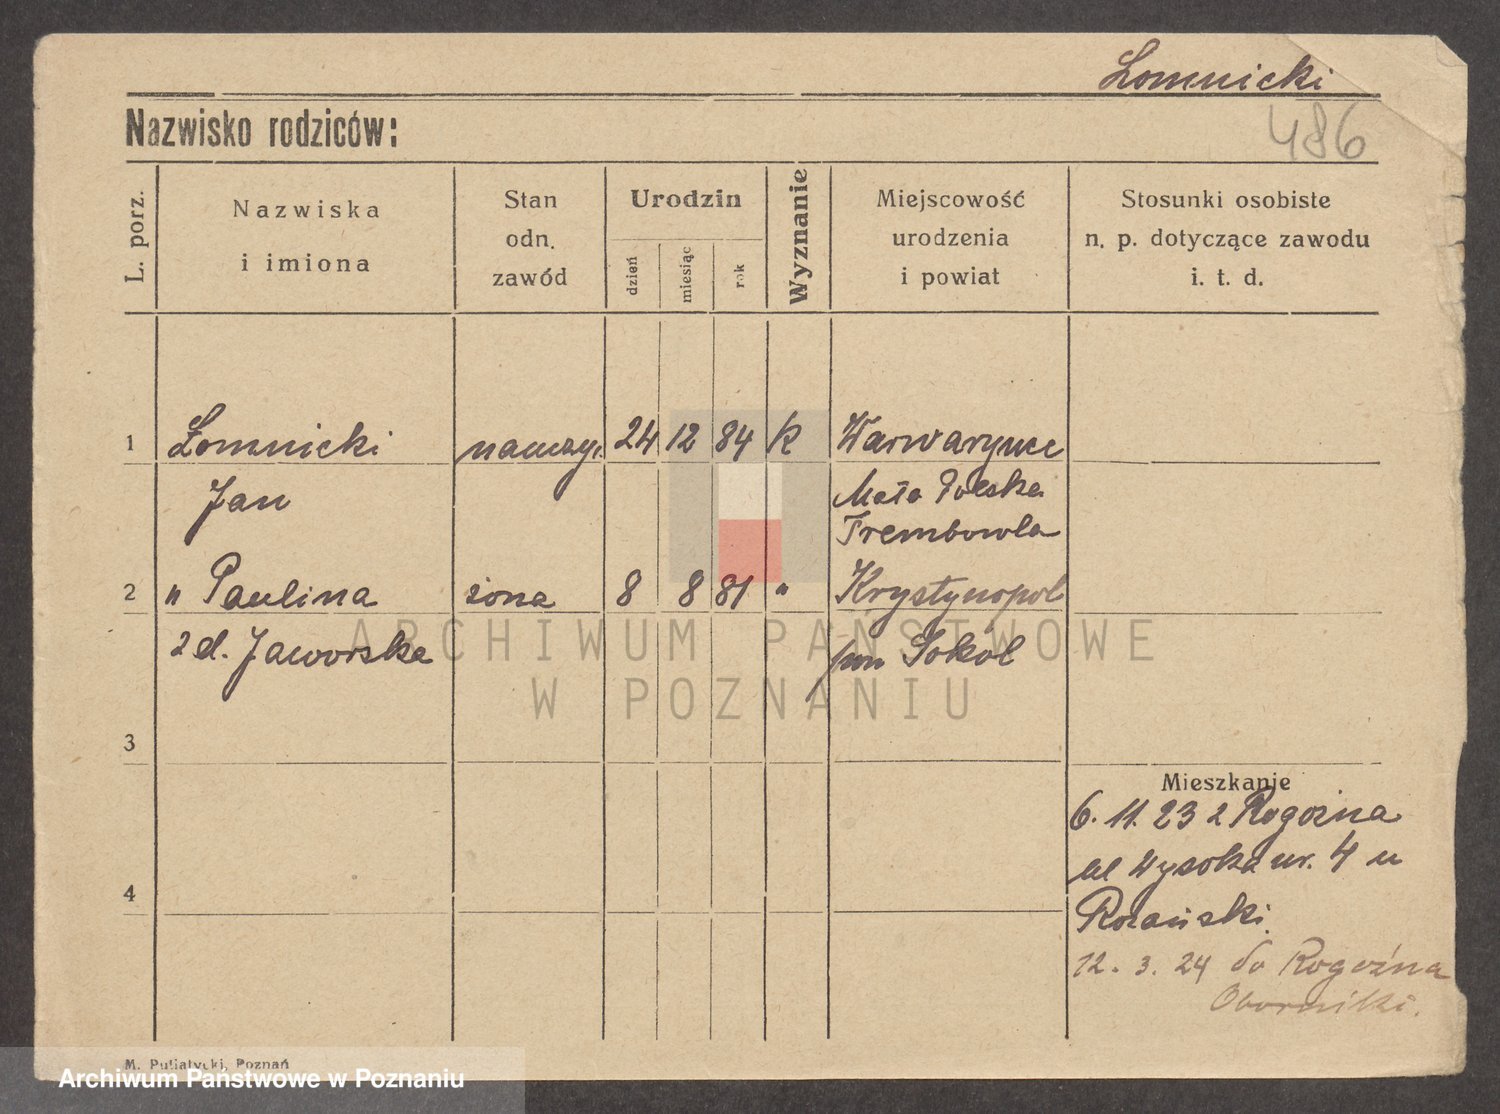 Łomnicki
486
Nazwisko rodziców:
L. porz.
Nazwiska
i imiona
Stan
odn.
zawód
Urodzin
dzień
miesiąc
rok
Wyznanie
Miejscowość
urodzenia
i powiat
Stosunki osobiste
n. p. dotyczące zawodu
i. t. d.
1 Łomnicki nauczyc. 24 12 84 k Warwaryńce
Jan Mała Polska
Trembowla
2 " Paulina żona 8 8 81 " Krystynopol
z d. Jaworska pow Sokól
3
Mieszkanie
6. 11. 23 z Rogoźna
ul Wysoka nr. 4 u
4
12. 3. 24 do Rogoźna
Oborniki.
M. Putiatycki, Poznań
ARCHIWUM PAŃSTWOWE
W POZNANIU
Archiwum Państwowe w Poznaniu